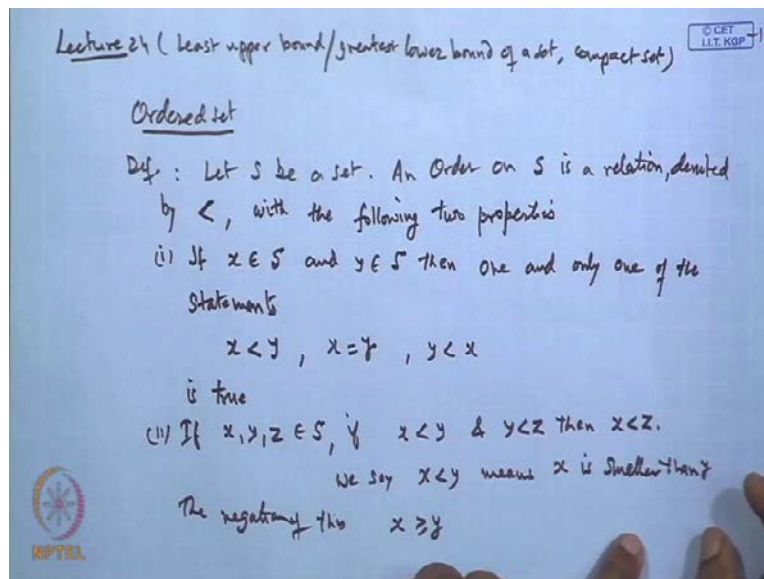 Lecture 24 (Least upper bound/greatest lower bound of a set, compact set)
© CET
I.I.T. KGP
Ordered set
Def : Let S be a set. An Order on S is a relation, denoted
by <, with the following two properties
(i) If x ∈ S and y ∈ S then one and only one of the
Statements
x < y , x = y , y < x
is true
(ii) If x, y, z ∈ S, if x < y & y < z then x < z.
We say x < y means x is smaller than y
The negation of this x ≥ y
NPTEL